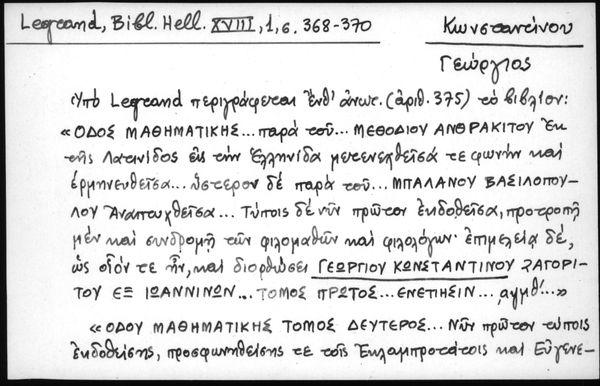 Legrand, Bibl. Hell. XVIII, 1, σ. 368-370
Κωνσταντίνου
Γεώργιος
Ὑπὸ Legrand περιγράφεται ἔνθ' ἀνωτ. (ἀριθ. 375) τὸ βιβλίον:
« ΟΔΟΣ ΜΑΘΗΜΑΤΙΚΗΣ... παρὰ τοῦ... ΜΕΘΟΔΙΟΥ ΑΝΘΡΑΚΙΤΟΥ ἐκ
τῆς Λατινίδος εἰς τὴν Ἑλληνίδα μετενεχθεῖσά τε φωνὴν καὶ
ἑρμηνευθεῖσα... ὕστερον δὲ παρὰ τοῦ... ΜΠΑΛΑΝΟΥ ΒΑΣΙΛΟΠΟΥ-
ΛΟΥ ἀναπτυχθεῖσα... Τύποις δὲ νῦν πρῶτον ἐκδοθεῖσα, προτροπῇ
μὲν καὶ συνδρομῇ τῶν φιλομαθῶν καὶ φιλολόγων· ἐπιμελείᾳ δέ,
ὡς οἷόν τε ἦν, καὶ διορθώσει ΓΕΩΡΓΙΟΥ ΚΩΝΣΤΑΝΤΙΝΟΥ ΖΑΓΟΡΙ-
ΤΟΥ ΕΞ ΙΩΑΝΝΙΝΩΝ... ΤΟΜΟΣ ΠΡΩΤΟΣ... ΕΝΕΤΙΗΣΙΝ..., αψμθ'...»
« ΟΔΟΥ ΜΑΘΗΜΑΤΙΚΗΣ ΤΟΜΟΣ ΔΕΥΤΕΡΟΣ... Νῦν πρῶτον τύποις
ἐκδοθείσης, προσφωνηθείσης τε τοῖς Ἐκλαμπροτάτοις καὶ Εὐγενε-